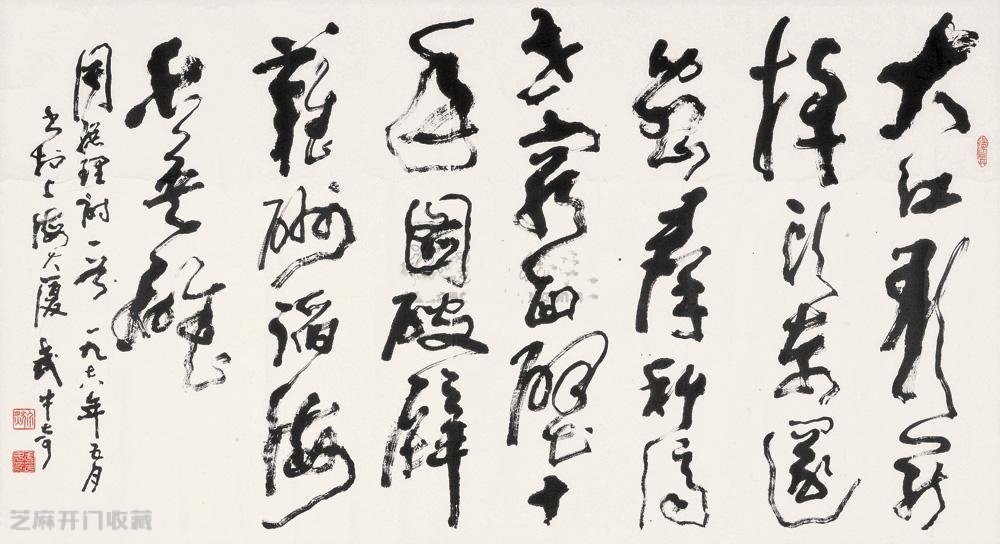 大江歌罷
掉頭東邃
密群科濟
世窮面壁十
年圖破壁
難酬蹈海
亦英雄
周總理詩一首 一九七八年五月
書於上海大廈 武中奇
芝麻开门收藏